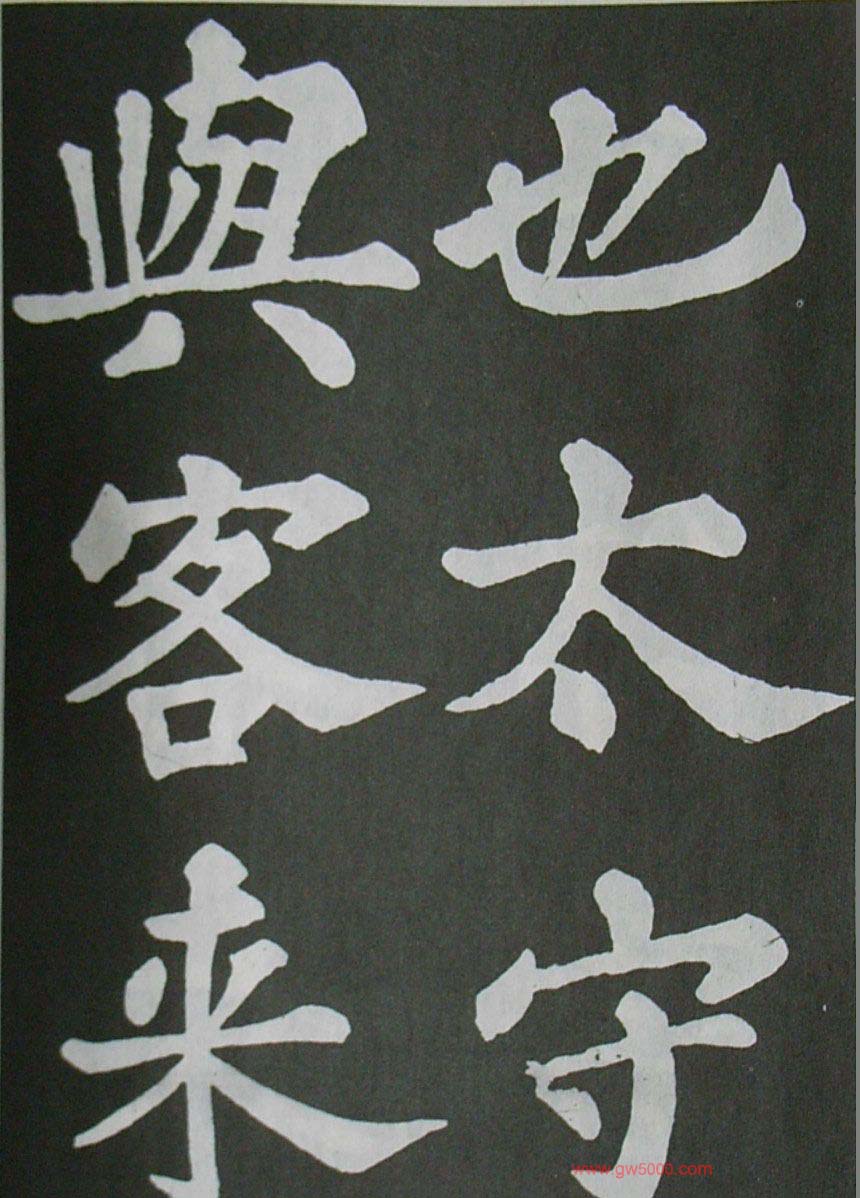 也太守
與客来
www.gw5000.com